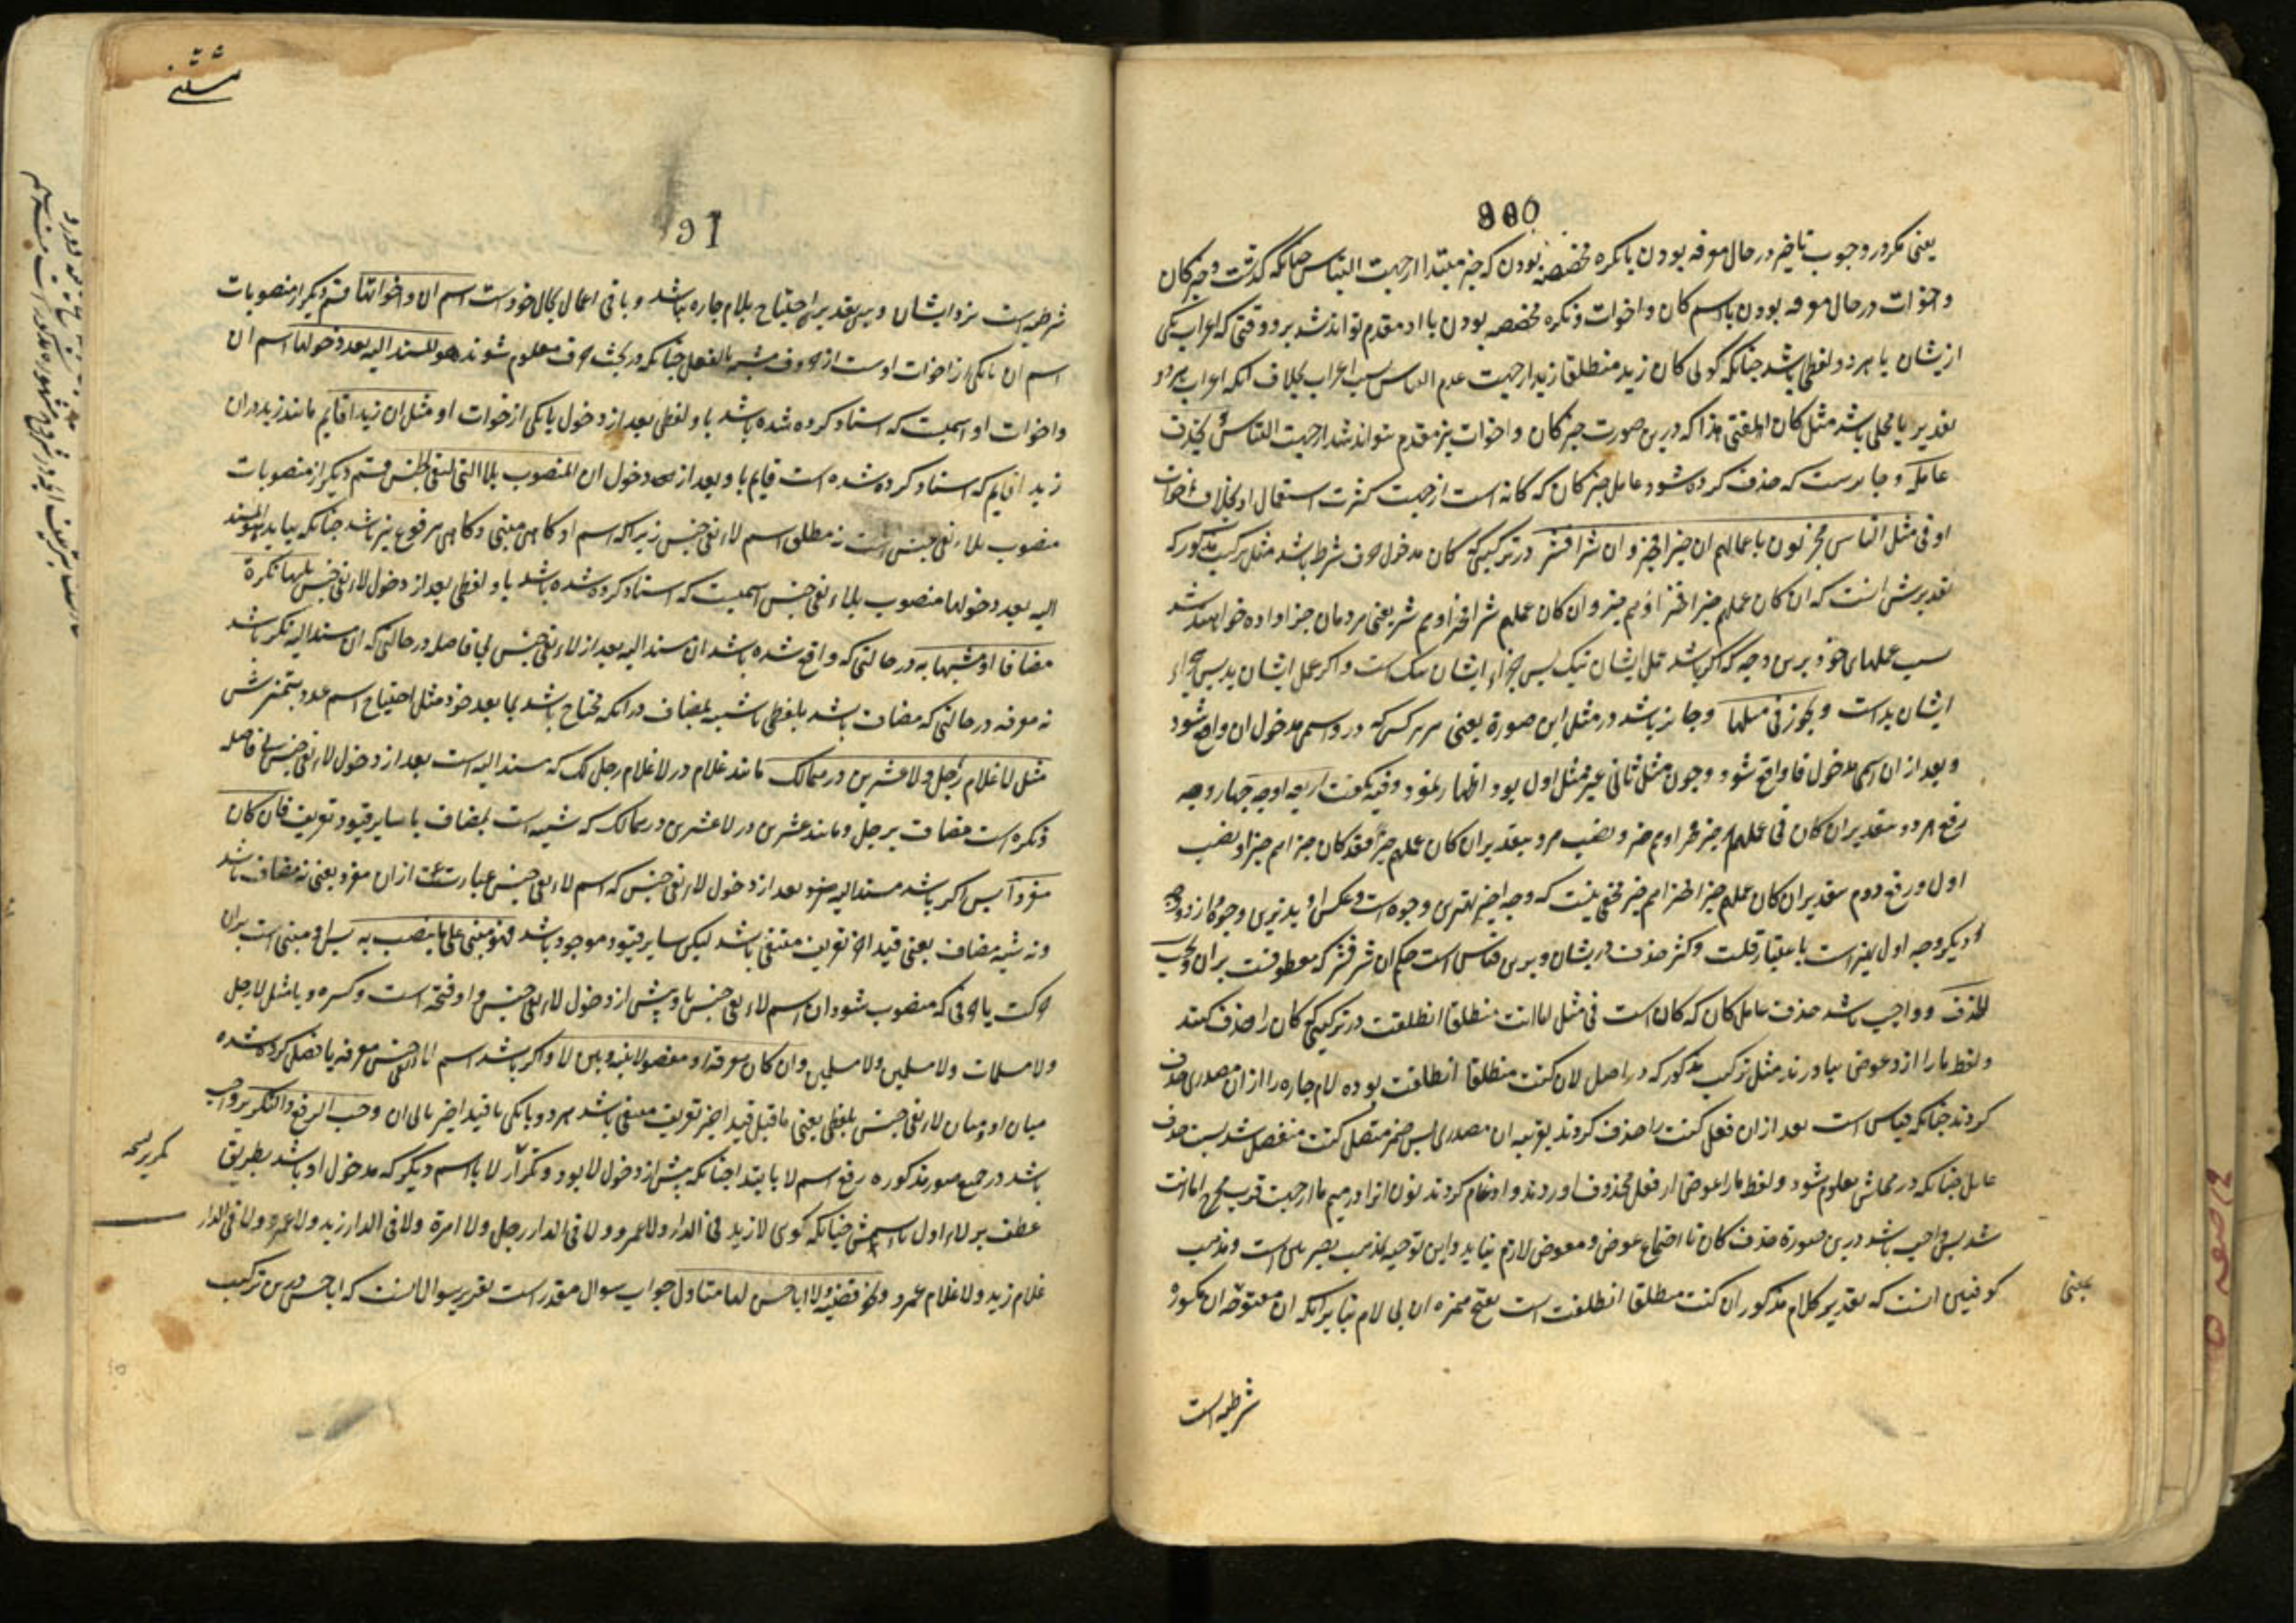 یعنی مکر در وجوب تاخیر در حال معرفه بودن یا نکره مخصصه بودن که خبر مبتدا از جهت التباس چنانکه گذشت و خبر کان
و اخوات در حال معرفه بودن با اسم کان و اخوات و نکره مخصصه بودن با او مقدم تواند شد بر او وقتی که اعراب یکی
ازیشان یا هر دو لفظی باشد چنانکه گوئی کان زید منطلقا زید از جهت عدم التباس بسبب اعراب بخلاف آنکه اعراب هر دو
تقدیر یا محلی باشد مثل کان الفتی هذا که درین صورت خبر کان و اخوات نیز مقدم نتواند شد از جهت التباس و یحذف
عامله و جایزست که حذف کرده شود عامل خبر کان که کانه است از جهت کثرت استعمال او بخلاف اخوات
او فی مثل الناس مجزیون باعمالهم ان خیرا فخیر و ان شرا فشر در ترکیبی که کان مدخول حرف شرط باشد مثل ترکیب مذکور که
تقدیرش انست که ان کان عملهم خیرا فجزاؤهم خیر و ان کان عملهم شرا فجزاؤهم شر یعنی مردمان جزا داده خواهند شد
بسبب عملهای خود برین وجه که اگر باشد عمل ایشان نیک پس جزاء ایشان نیک است و اگر عمل ایشان بد پس جزاء
ایشان بد است و یجوز فی مثلها و جایز باشد در مثل این صورة یعنی هر ترکیبی که درو اسمی مدخول ان واقع شود
و بعد از ان اسمی مدخول فا واقع شود و چون مثل ثانی غیر مثل اول بود اظهار نمود و فیه نگفت اربعه اوجه چهار وجه
رفع هر دو بتقدیر ان کان فی عملهم خیر فجزاؤهم خیر و نصب هر دو بتقدیر ان کان عملهم خیرا فقد کان جزاؤهم خیرا و نصب
اول و رفع دوم بتقدیر ان کان عملهم خیرا فجزاؤهم خیر مخفی نیست که وجه اخیر بهترین وجوه است و عکس او بدترین وجوه و از دو وجه
دیگر وجه اول بهتر است باعتبار قلت و کثرت حذف دریشان و برین قیاس است حکم ان شرا فشر که معطوفست بران و یجب
الحذف و واجب باشد حذف عامل کان که کان است فی مثل اما انت منطلقا انطلقت در ترکیبی که کان را حذف کنند
و لفظ ما را ازو عوض بیاورند مثل ترکیب مذکور که در اصل لان کنت منطلقا انطلقت بوده لام جاره را از ان مصدری حذف
کردند چنانکه قیاس است بعد ازان فعل کنت را حذف کردند بقرینه ان مصدری پس ضمیر متصل کنت منفصل شد بسبب حذف
عامل چنانکه در محلش معلوم شود و لفظ ما را عوض از فعل محذوف اوردند و ادغام کردند نون انرا در میم ما از جهت قرب مخرج اما انت
شد پس واجب باشد درین صورة حذف کان تا اجتماع عوض و معوض لازم نیاید و این توجیه مذهب بصریین است و مذهب
کوفیین انست که تقدیر کلام مذکور ان کنت منطلقا انطلقت است بفتح همزه ان بی لام بنا برانکه ان مفتوحه ان مکسوره
بمعنی
شرطیه است
91
شرطیه است نزد ایشان و برین تقدیر احتیاج بلام جاره نباشد و باقی اعمال بحال خود است اسم ان و اخواتها قسم دیگر از منصوبات
اسم ان یا یکی از اخوات اوست از حروف مشبه بالفعل چنانکه در بحث حرف معلوم شوند هو المسند الیه بعد دخولها اسم ان
و اخوات او اسمیست که اسناد کرده شده باشد باو لفظی بعد از دخول یا یکی از اخوات او مثل ان زیدا قایم مانند زید در ان
زیدا قایم که اسناد کرده شده است قایم باو بعد از دخول ان المنصوب بلا التی لنفی الجنس قسم دیگر از منصوبات
منصوب بلاء نفی جنس است نه مطلق اسم لاء نفی جنس زیرا که اسم او کاهی مبنی و کاهی مرفوع نیز باشد چنانکه بیاید هو المسند
الیه بعد دخولها منصوب بلاء نفی جنس اسمیست که اسناد کرده شده باشد باو لفظی بعد از دخول لاء نفی جنس یلیها نکرة
مضافا او مشبها به در حالتی که واقع شده باشد ان مسند الیه بعد از لاء نفی جنس بی فاصله در حالتی که ان مسند الیه نکره باشد
نه معرفه در حالتی که مضاف باشد بلفظی یا شبیه بمضاف در انکه محتاج باشد بما بعد خود مثل احتیاج اسم عدد بتمیزش
مثل لا غلام رجل و لا عشرین درهما لک مانند غلام در لا غلام رجل لک که مسند الیه است بعد از دخول لاء نفی جنس بی فاصله
و نکره است مضاف برجل و مانند عشرین در لا عشرین درهما لک که شبیه است بمضاف با سایر قیود تعریف فان کان
مفردا پس اگر باشد مسند الیه بعد از دخول لاء نفی جنس که اسم لاء نفی جنس عبارتست ازان مفرد یعنی نه مضاف باشد
و نه شبه مضاف یعنی قید اخر تعریف منتفی باشد لیکن سایر قیود موجود باشد فهو مبنی علی ما ینصب به پس او مبنی است بران
حرکت یا حرفی که منصوب شود ان اسم لاء نفی جنس باو پیش از دخول لاء نفی جنس و او فتحه است و کسره و یا مثل لا رجل
و لا مسلمات و لا مسلمین و لا مسلمین و ان کان معرفة او مفصولا بینه و بین لا و اگر باشد اسم لاء نفی جنس معرفه یا فصل کرده شده
میان او و میان لاء نفی جنس بلفظی یعنی ما قبل قید اخیر تعریف منتفی باشد هر دو یا یکی با قید اخیر یا بی ان وجب الرفع و التکریر واجب
باشد در جمیع صور مذکوره رفع اسم لا بابتدا چنانکه پیش از دخول لا بود و تکرار لا با اسم دیگر که مدخول او باشد بطریق
عطف بر لاء اول با اسمش چنانکه گوئی لا زید فی الدار و لا عمرو و لا فی الدار رجل و لا امرة و لا فی الدار زید و لا عمرو و لا فی الدار
غلام زید و لا غلام عمرو و نحو قضیة و لا ابا حسن لها متاول جواب سوال مقدر است تقریر سوال انست که ابا حسن درین ترکیب